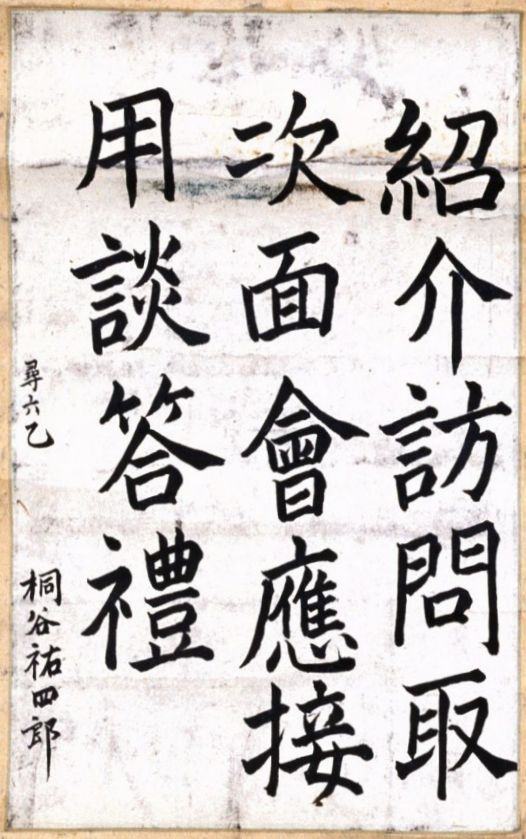 紹介訪問取
次面會應接
用談答禮
尋六乙
桐谷祐四郎